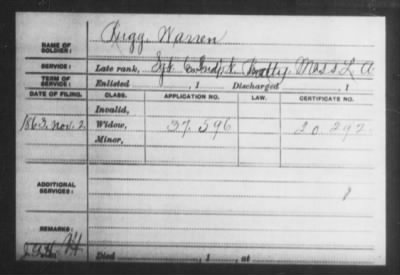 NAME OF SOLDIER: Rigg Warren
SERVICE: Late rank, Sgt Batty Mass L A
TERM OF SERVICE: Enlisted , 1 Discharged , 1
DATE OF FILING. CLASS. APPLICATION NO. LAW. CERTIFICATE NO.
Invalid,
1863. Nov. 2. Widow, 37.596 20.292
Minor,
ADDITIONAL SERVICES:
REMARKS:
Died , 1 , at